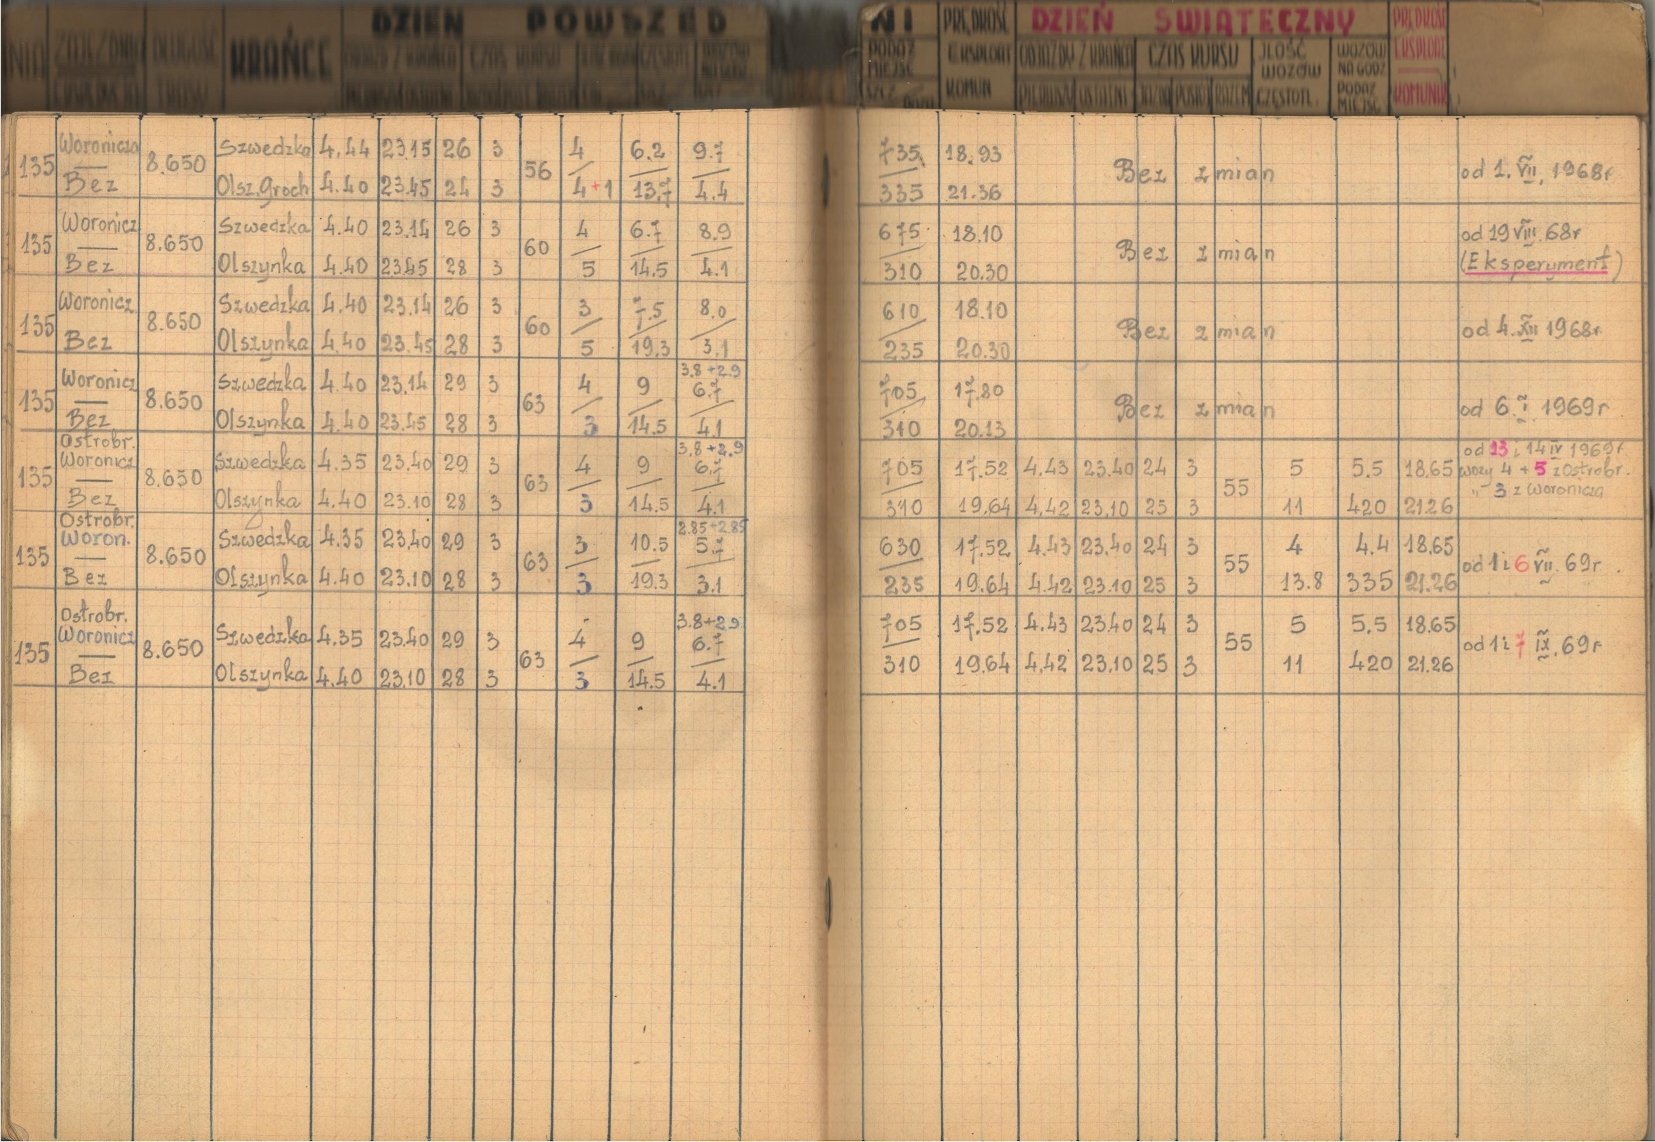 DZIEŃ POWSZED
NI PRĘDKOŚĆ DZIEŃ ŚWIĄTECZNY PRĘDKOŚĆ
KRAŃCE
PODAŻ MIEJSC EKSPLOAT KOMUN ODJAZDY Z KRAŃCA CZAS KURSU JLOŚĆ WOZÓW WOZÓW NA GODZ EKSPLOAT
PIERWSZY OSTATNI JAZDA POSTÓJ RAZEM CZĘSTOTL. PODAŻ MIEJSC KOMUNIK
Woronicza Szwedzka 4.44 23.15 26 3 4 6.2 9.7 735 18.93
135 8.650 56 Bez zmian od 1.VII.1968r
Bez Olsz.Groch 4.40 23.45 24 3 4+1 13.7 4.4 335 21.36
Woronicz Szwedzka 4.40 23.14 26 3 4 6.7 8.9 675 18.10 od 19 VIII.68r
135 8.650 60 Bez zmian
Bez Olszynka 4.40 23.45 28 3 5 14.5 4.1 310 20.30 (Eksperyment)
Woronicz Szwedzka 4.40 23.14 26 3 3 7.5 8.0 610 18.10
135 8.650 60 Bez zmian od 4.XII 1968r
Bez Olszynka 4.40 23.45 28 3 5 19.3 3.1 235 20.30
3.8+2.9
Woronicz Szwedzka 4.40 23.14 29 3 4 9 6.7 705 17.80
135 8.650 63 Bez zmian od 6.I 1969r
Bez Olszynka 4.40 23.45 28 3 3 14.5 4.1 310 20.13
Ostrobr. 3.8+2.9 od 13 i 14 IV 1969r
Woronicz Szwedzka 4.35 23.40 29 3 4 9 6.7 705 17.52 4.43 23.40 24 3 5 5.5 18.65 wozy 4 + 5 z Ostrobr.
135 8.650 63 55 " 3 z Woronicza
Bez Olszynka 4.40 23.10 28 3 3 14.5 4.1 310 19.64 4.42 23.10 25 3 11 420 21.26
Ostrobr. 2.85+2.85
Woron. Szwedzka 4.35 23.40 29 3 3 10.5 5.7 630 17.52 4.43 23.40 24 3 4 4.4 18.65
135 8.650 63 55 od 1 i 6 VII.69r.
Bez Olszynka 4.40 23.10 28 3 3 19.3 3.1 235 19.64 4.42 23.10 25 3 13.8 335 21.26
Ostrobr. 3.8+2.9
Woronicz Szwedzka 4.35 23.40 29 3 4 9 6.7 705 17.52 4.43 23.40 24 3 5 5.5 18.65
135 8.650 63 55 od 1 i 7 IX.69r
Bez Olszynka 4.40 23.10 28 3 3 14.5 4.1 310 19.64 4.42 23.10 25 3 11 420 21.26